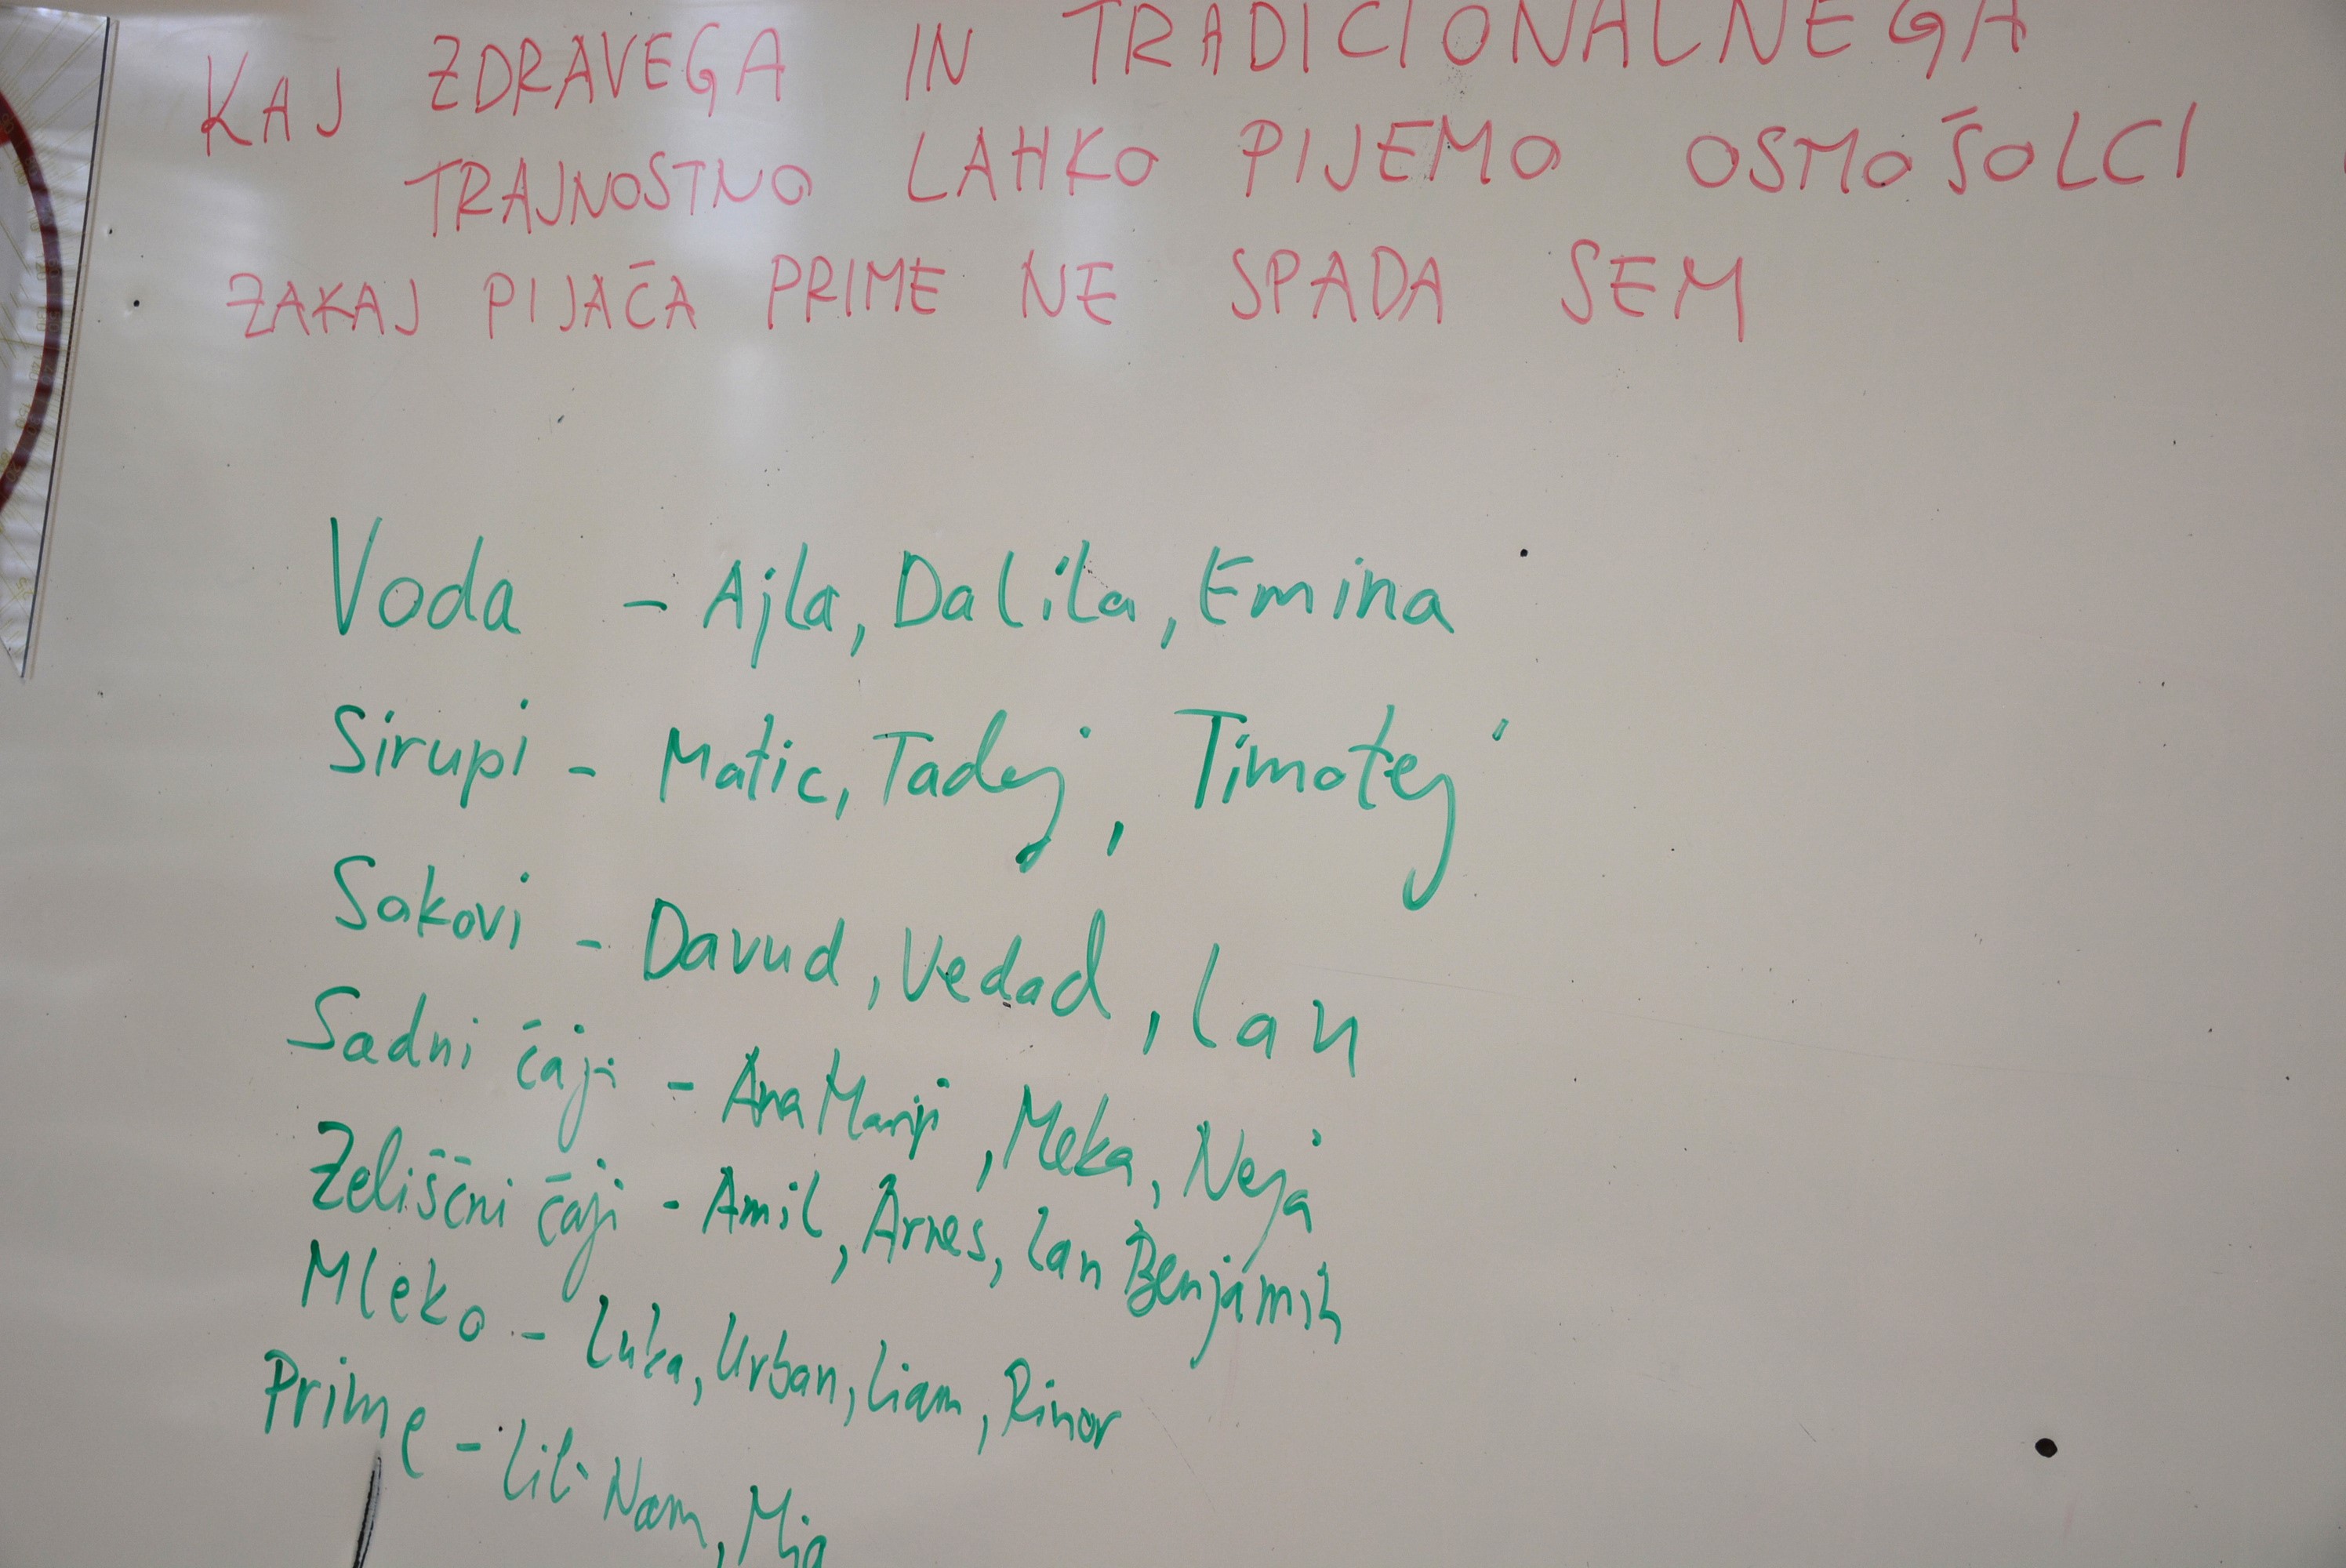 KAJ ZDRAVEGA IN TRADICIONALNEGA
TRAJNOSTNO LAHKO PIJEMO OSMOŠOLCI
ZAKAJ PIJAČA PRIME NE SPADA SEM
Voda - Ajla, Dalila, Emina
Sirupi - Matic, Tadej, Timotej
Sokovi - Davud, Vedad, Lan
Sadni čaji - Ana Marija, Meka, Neja
Zeliščni čaji - Amil, Arnes, Lan Benjamin
Mleko - Luka, Urban, Liam, Rinor
Prime - Lili Nam, Mia